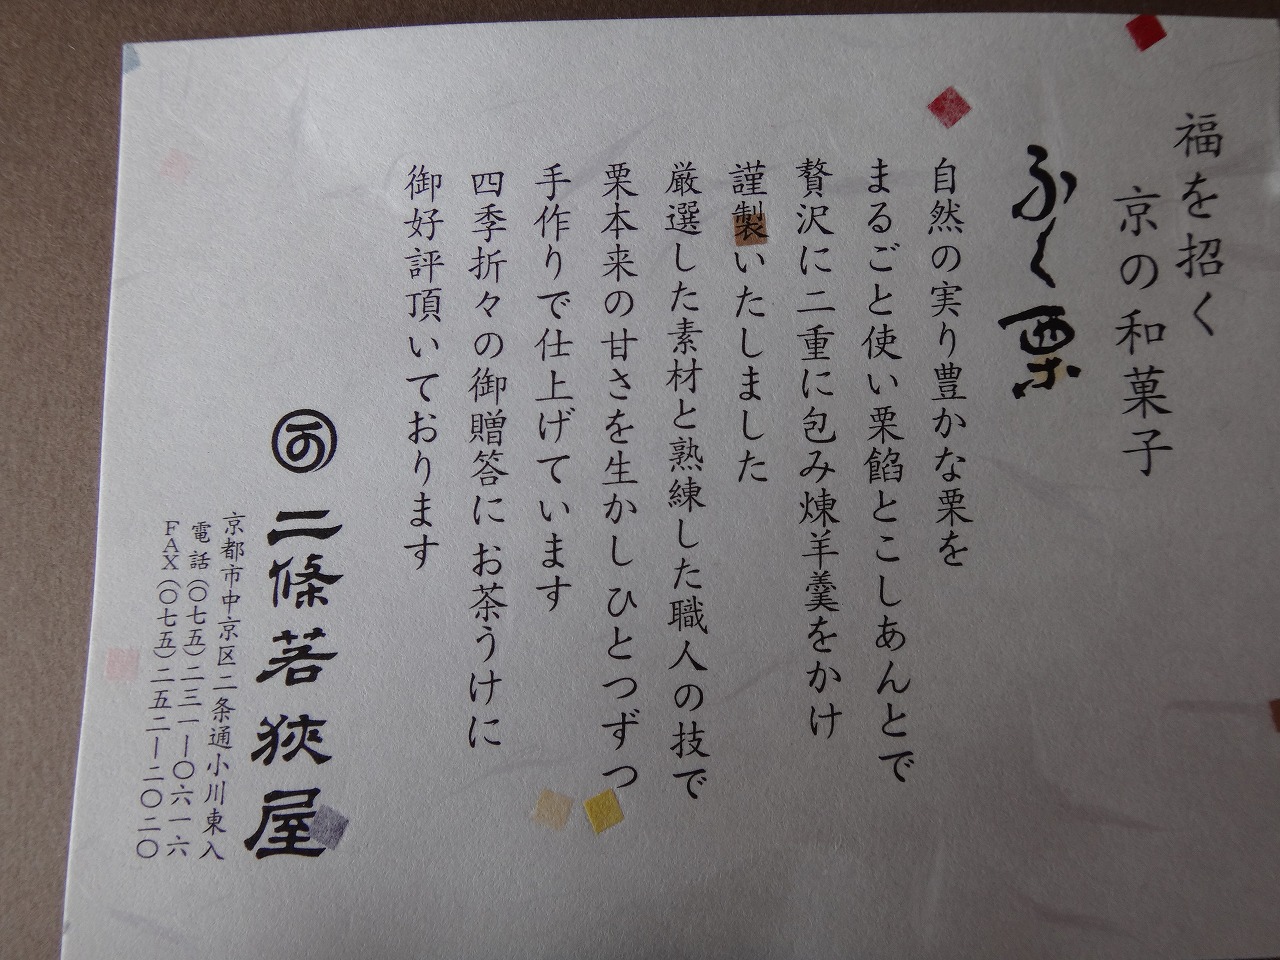 福を招く
京の和菓子
ふく栗
自然の実り豊かな栗を
まるごと使い栗餡とこしあんとで
贅沢に二重に包み煉羊羹をかけ
謹製いたしました
厳選した素材と熟練した職人の技で
栗本来の甘さを生かし ひとつずつ
手作りで仕上げています
四季折々の御贈答に お茶うけに
御好評頂いております
二條若狭屋
京都市中京区二条通小川東入
電話(〇七五)二三一―〇六一六
FAX(〇七五)二五二―二〇二〇